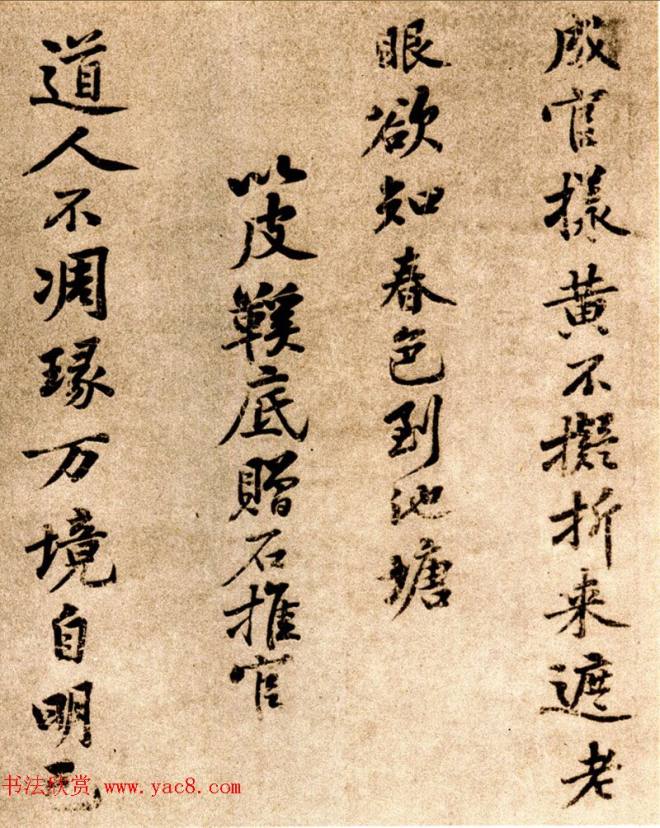 成官様黄不擬折来遮老
眼欲知春色到池塘
以皮鞵底贈石推官
道人不凋琢万境自明己
书法欣赏 www.yac8.com